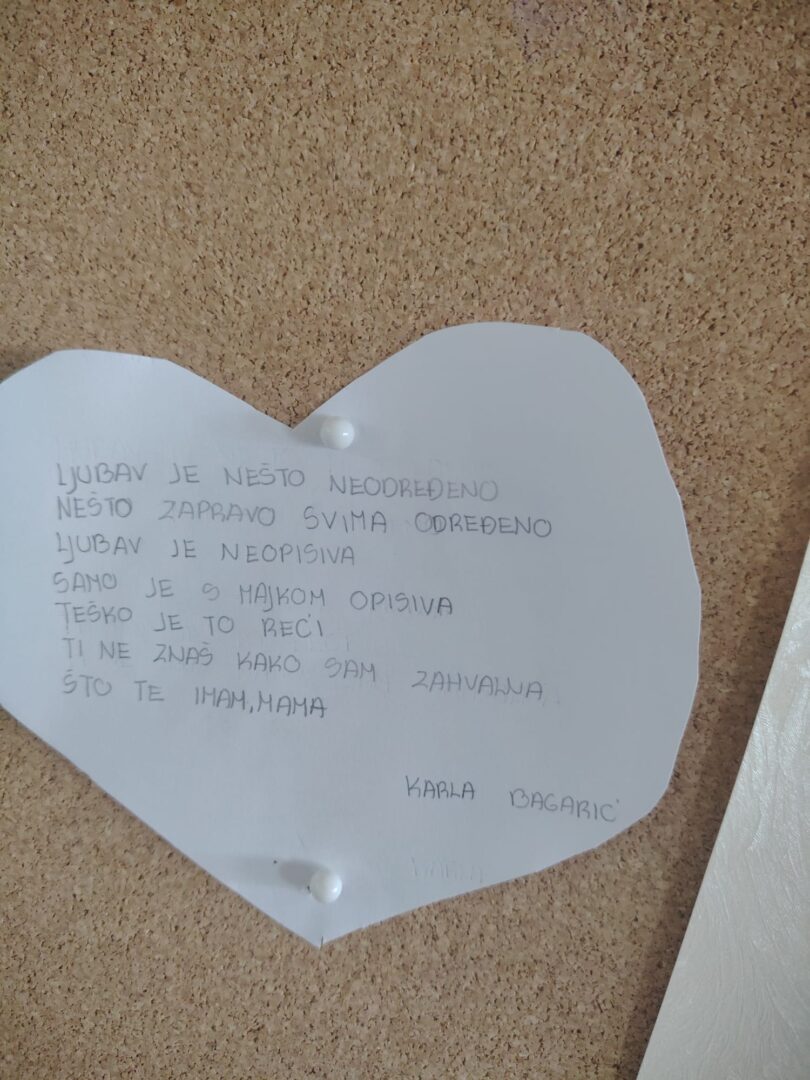 LJUBAV JE NEŠTO NEODREĐENO
NEŠTO ZAPRAVO SVIMA ODREĐENO
LJUBAV JE NEOPISIVA
SAMO JE S MAJKOM OPISIVA
TEŠKO JE TO REĆI
TI NE ZNAŠ KAKO SAM ZAHVALNA
ŠTO TE IMAM, MAMA
KARLA BAGARIĆ